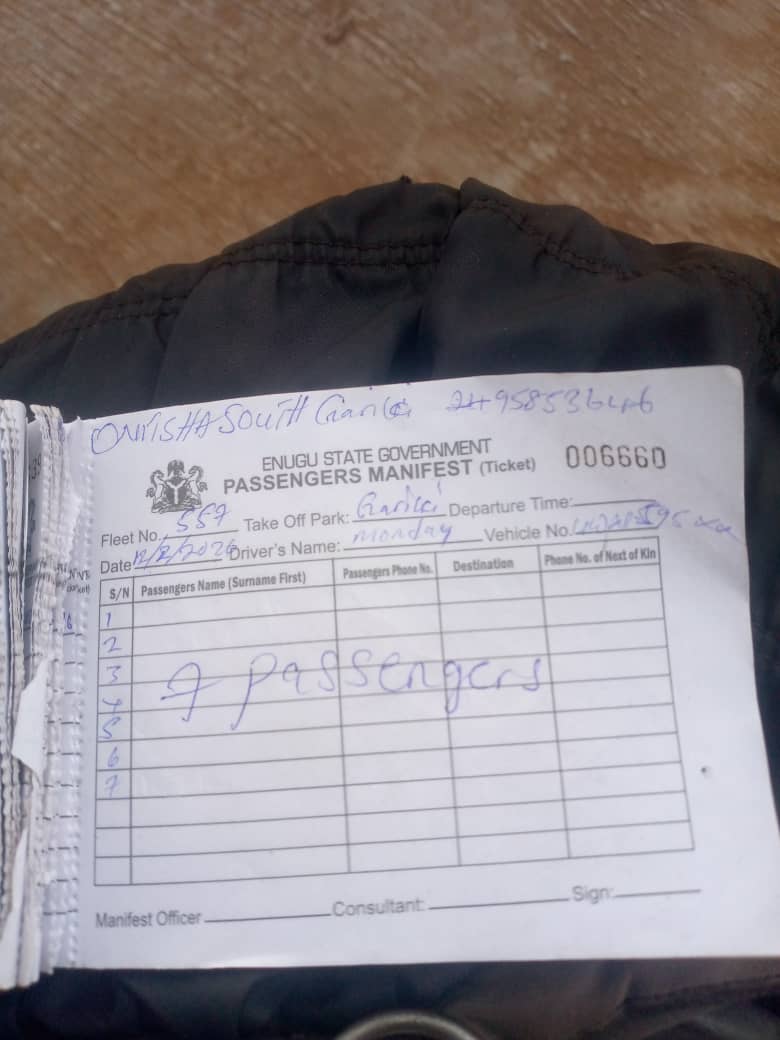 ONITSHA SOUTH Gariki
ENUGU STATE GOVERNMENT
PASSENGERS MANIFEST (Ticket) 006660
Fleet No. 557 Take Off Park: Gariki Departure Time:
Date 12/2/2026 Driver's Name: Monday Vehicle No.
S/N Passengers Name (Surname First) Passengers Phone No. Destination Phone No. of Next of Kin
1
2
3
7 passengers
4
5
6
7
Manifest Officer Consultant: Sign: